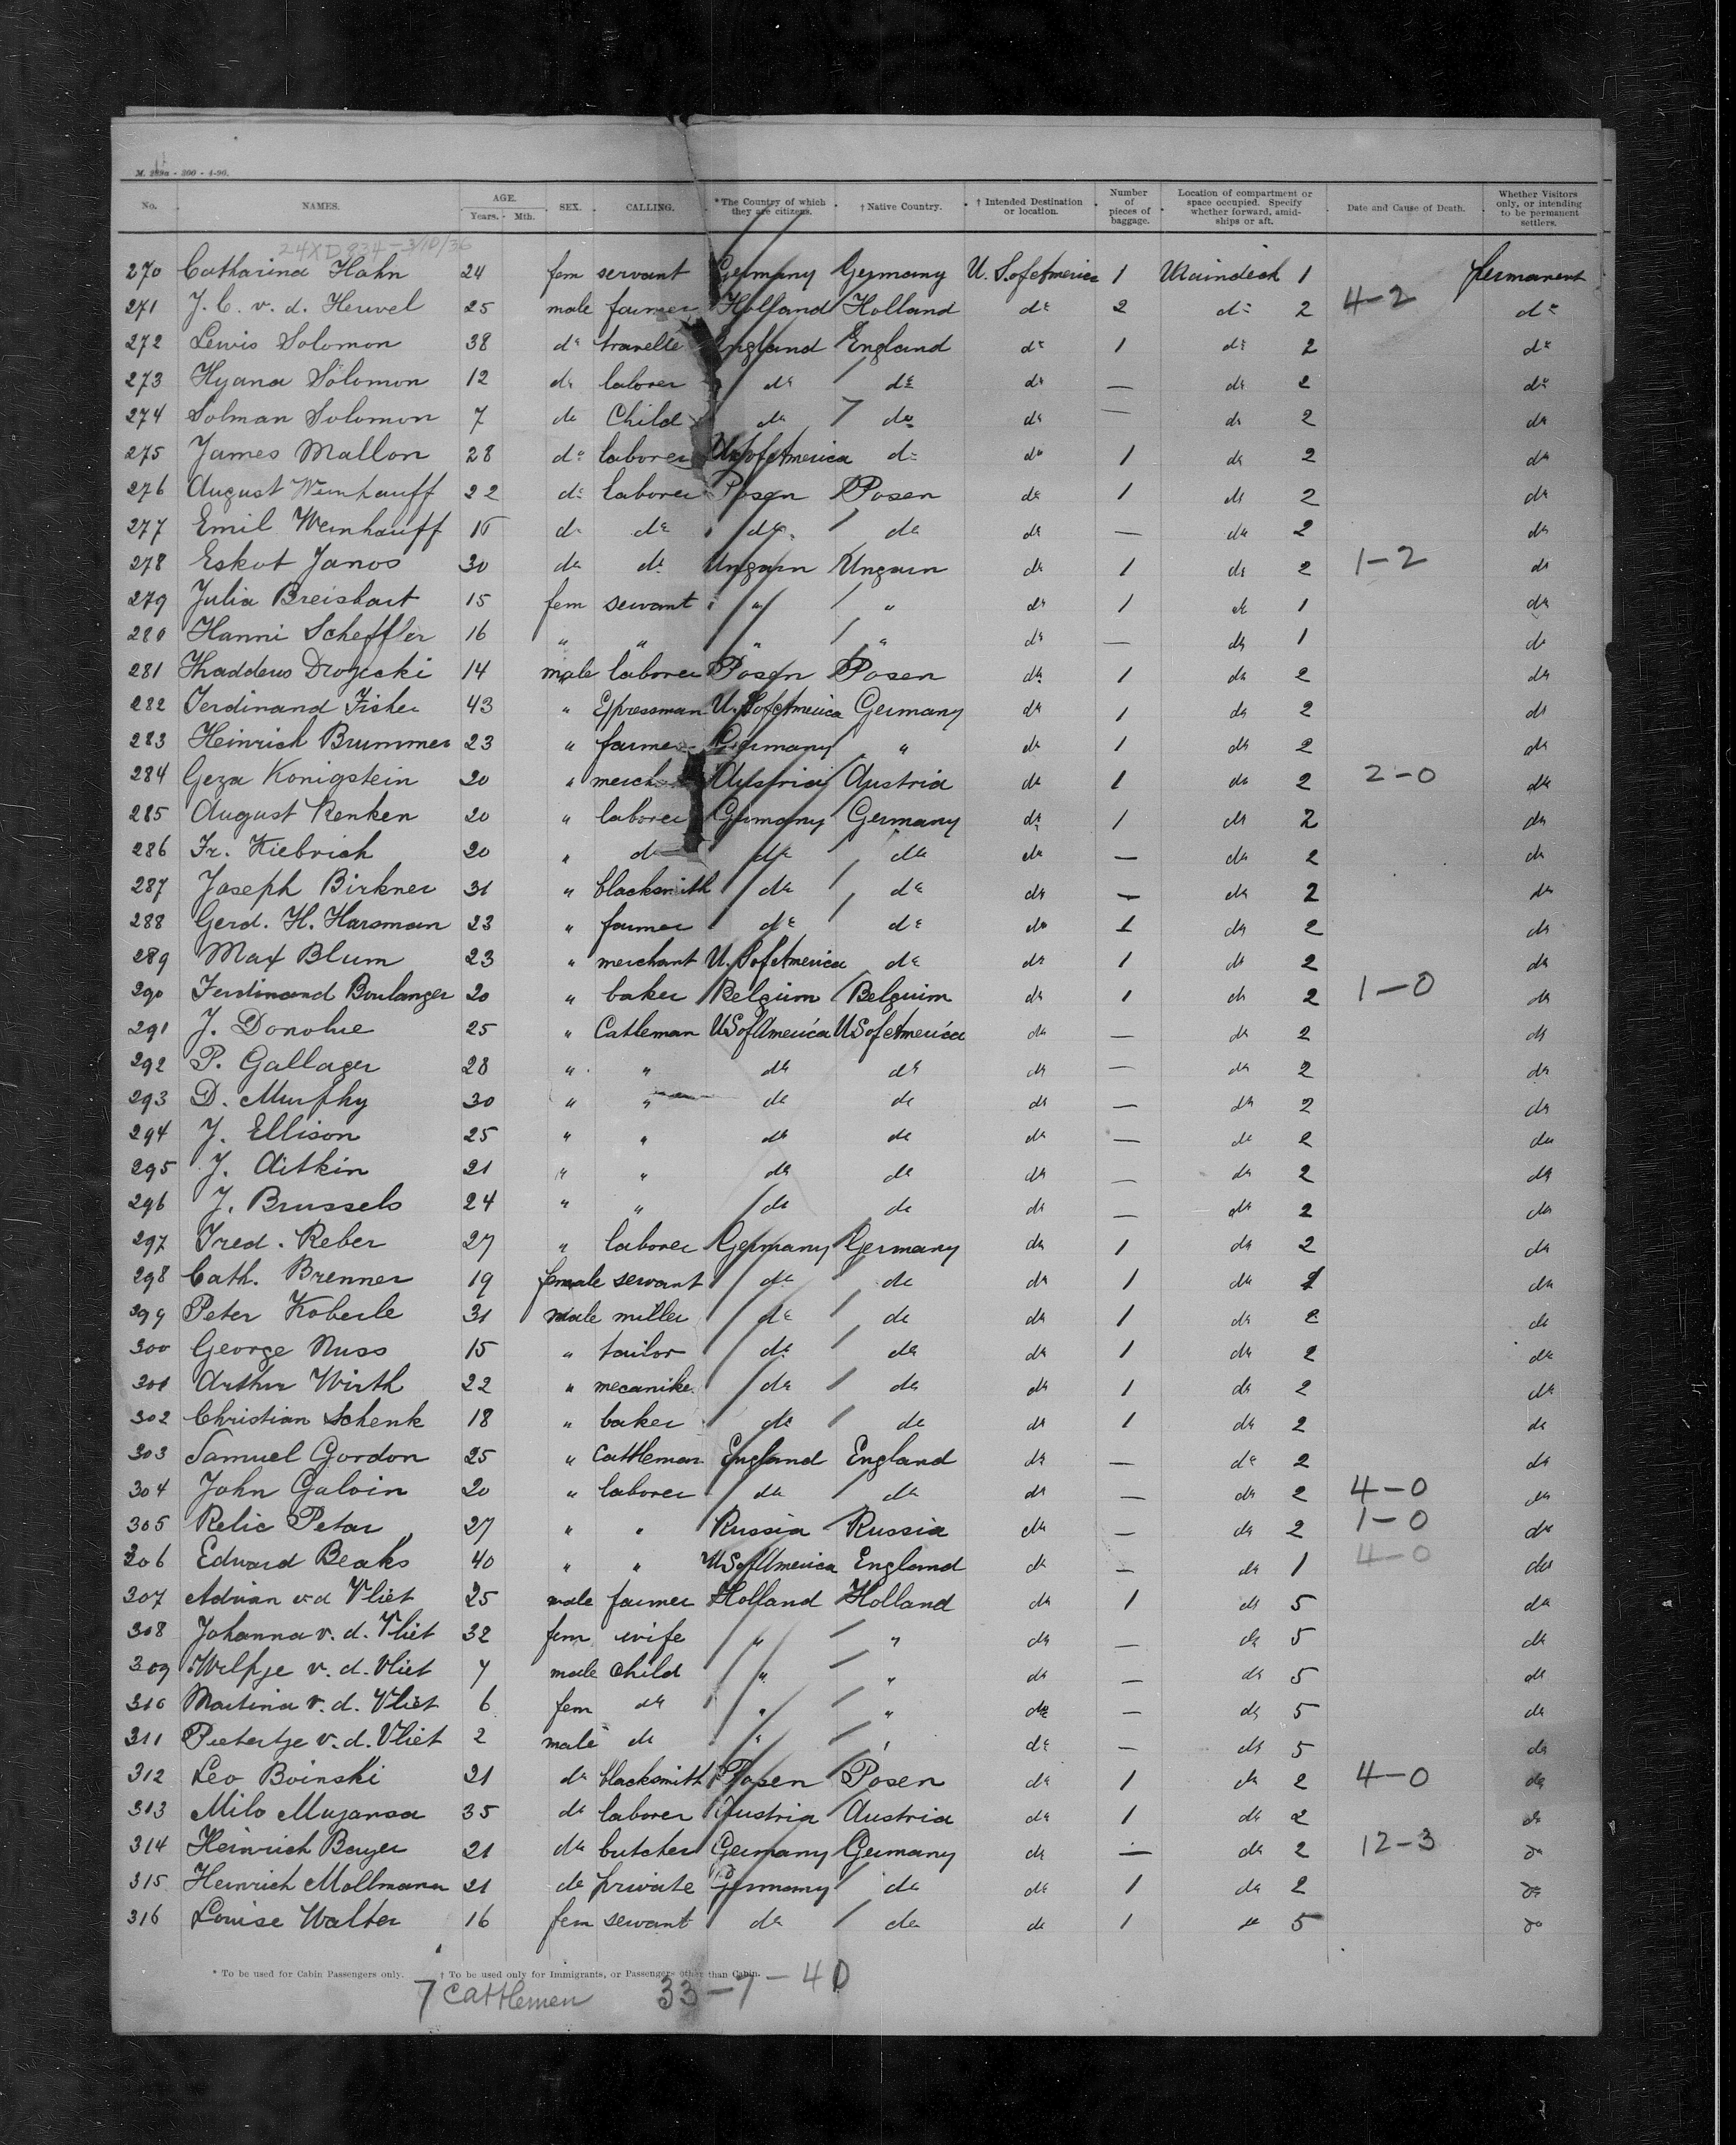 M. 289a - 300 - 4-96.
No. NAMES. AGE. Years. Mth. SEX. CALLING. *The Country of which they are citizens. †Native Country. †Intended Destination or location. Number of pieces of baggage. Location of compartment or space occupied. Specify whether forward, amidships or aft. Date and Cause of Death. Whether Visitors only, or intending to be permanent settlers.
24XD934-3/10/36
270 Catharina Hahn 24 fem servant Germany Germany U. S. of America 1 Maindeck 1 permanent
271 J. C. v. d. Heuvel 25 male farmer Holland Holland do 2 do 2 4-2 do
272 Lewis Solomon 38 do travelle England England do 1 do 2 do
273 Hyana Solomon 12 do laborer do do do — do 2 do
274 Solman Solomon 7 do Child do do do — do 2 do
275 James Mallon 28 do laborer U.S. of America do do 1 do 2 do
276 August Weinhauff 22 do laborer Posen Posen do 1 do 2 do
277 Emil Weinhauff do do do do do — do 2 do
278 Eskot Janos 30 do do Ungarn Ungarn do 1 do 2 1-2 do
279 Julia Breishart 15 fem servant " " do 1 do 1 do
280 Hanni Scheffler 16 " " " " do — do 1 do
281 Thaddeus Drozicki 14 male laborer Posen Posen do 1 do 2 do
282 Ferdinand Fisher 43 " Expressman U. S. of America Germany do 1 do 2 do
283 Heinrich Brummer 23 " farmer Germany " do 1 do 2 do
284 Geza Konigstein 20 " merch Austria Austria do 1 do 2 2-0 do
285 August Renken 20 " laborer Germany Germany do 1 do 2 do
286 Fr. Kiebrich 20 " do do do do — do 2 do
287 Joseph Birkner 31 " blacksmith do do do — do 2 do
288 Gerd. H. Harsman 23 " farmer do do do 1 do 2 do
289 Max Blum 23 " merchant U. S of America do do 1 do 2 do
290 Ferdinand Boulanger 20 " baker Belgium Belguim do 1 do 2 1-0 do
291 J. Donohue 25 " Catleman US of America US of America do — do 2 do
292 P. Gallager 28 " " do do do — do 2 do
293 D. Murphy 30 " " do do do — do 2 do
294 J. Ellison 25 " " do do do — do 2 do
295 J. Aitkin 21 " " do do do — do 2 do
296 J. Brussels 24 " " do do do — do 2 do
297 Fred. Reber 27 " laborer Germany Germany do 1 do 2 do
298 Cath. Brenner 19 female servant do do do 1 do 1 do
299 Peter Koberle 31 male miller do do do 1 do 2 do
300 George Nuss 15 " tailor do do do 1 do 2 do
301 Arthur Wirth 22 " mecanike do do do 1 do 2 do
302 Christian Schenk 18 " baker do do do 1 do 2 do
303 Samuel Gordon 25 " Cattleman England England do — do 2 do
304 John Galvin 20 " laborer do do do — do 2 4-0 do
305 Relic Petar 27 " " Russia Russia do — do 2 1-0 do
306 Edward Beaks 40 " " US of America England do — do 1 4-0 do
307 Adrian v d Vliet 25 male farmer Holland Holland do 1 do 5 do
308 Johanna v. d. Vliet 32 fem wife " " do — do 5 do
309 Welpje v. d. Vliet 7 male Child " " do — do 5 do
310 Martina v. d. Vliet 6 fem do " " do — do 5 do
311 Pietertje v. d. Vliet 2 male do " " do — do 5 do
312 Leo Boinski 21 do blacksmith Posen Posen do 1 do 2 4-0 do
313 Milo Mujansa 35 do laborer Austria Austria do 1 do 2 do
314 Heinrich Bayer 21 do butcher Germany Germany do — do 2 12-3 do
315 Heinrich Mollmann 21 do private Germany do do 1 do 2 do
316 Louise Walter 16 fem servant do do do 1 do 5 do
* To be used for Cabin Passengers only. † To be used only for Immigrants, or Passengers other than Cabin.
7 Cattlemen 33-7-40